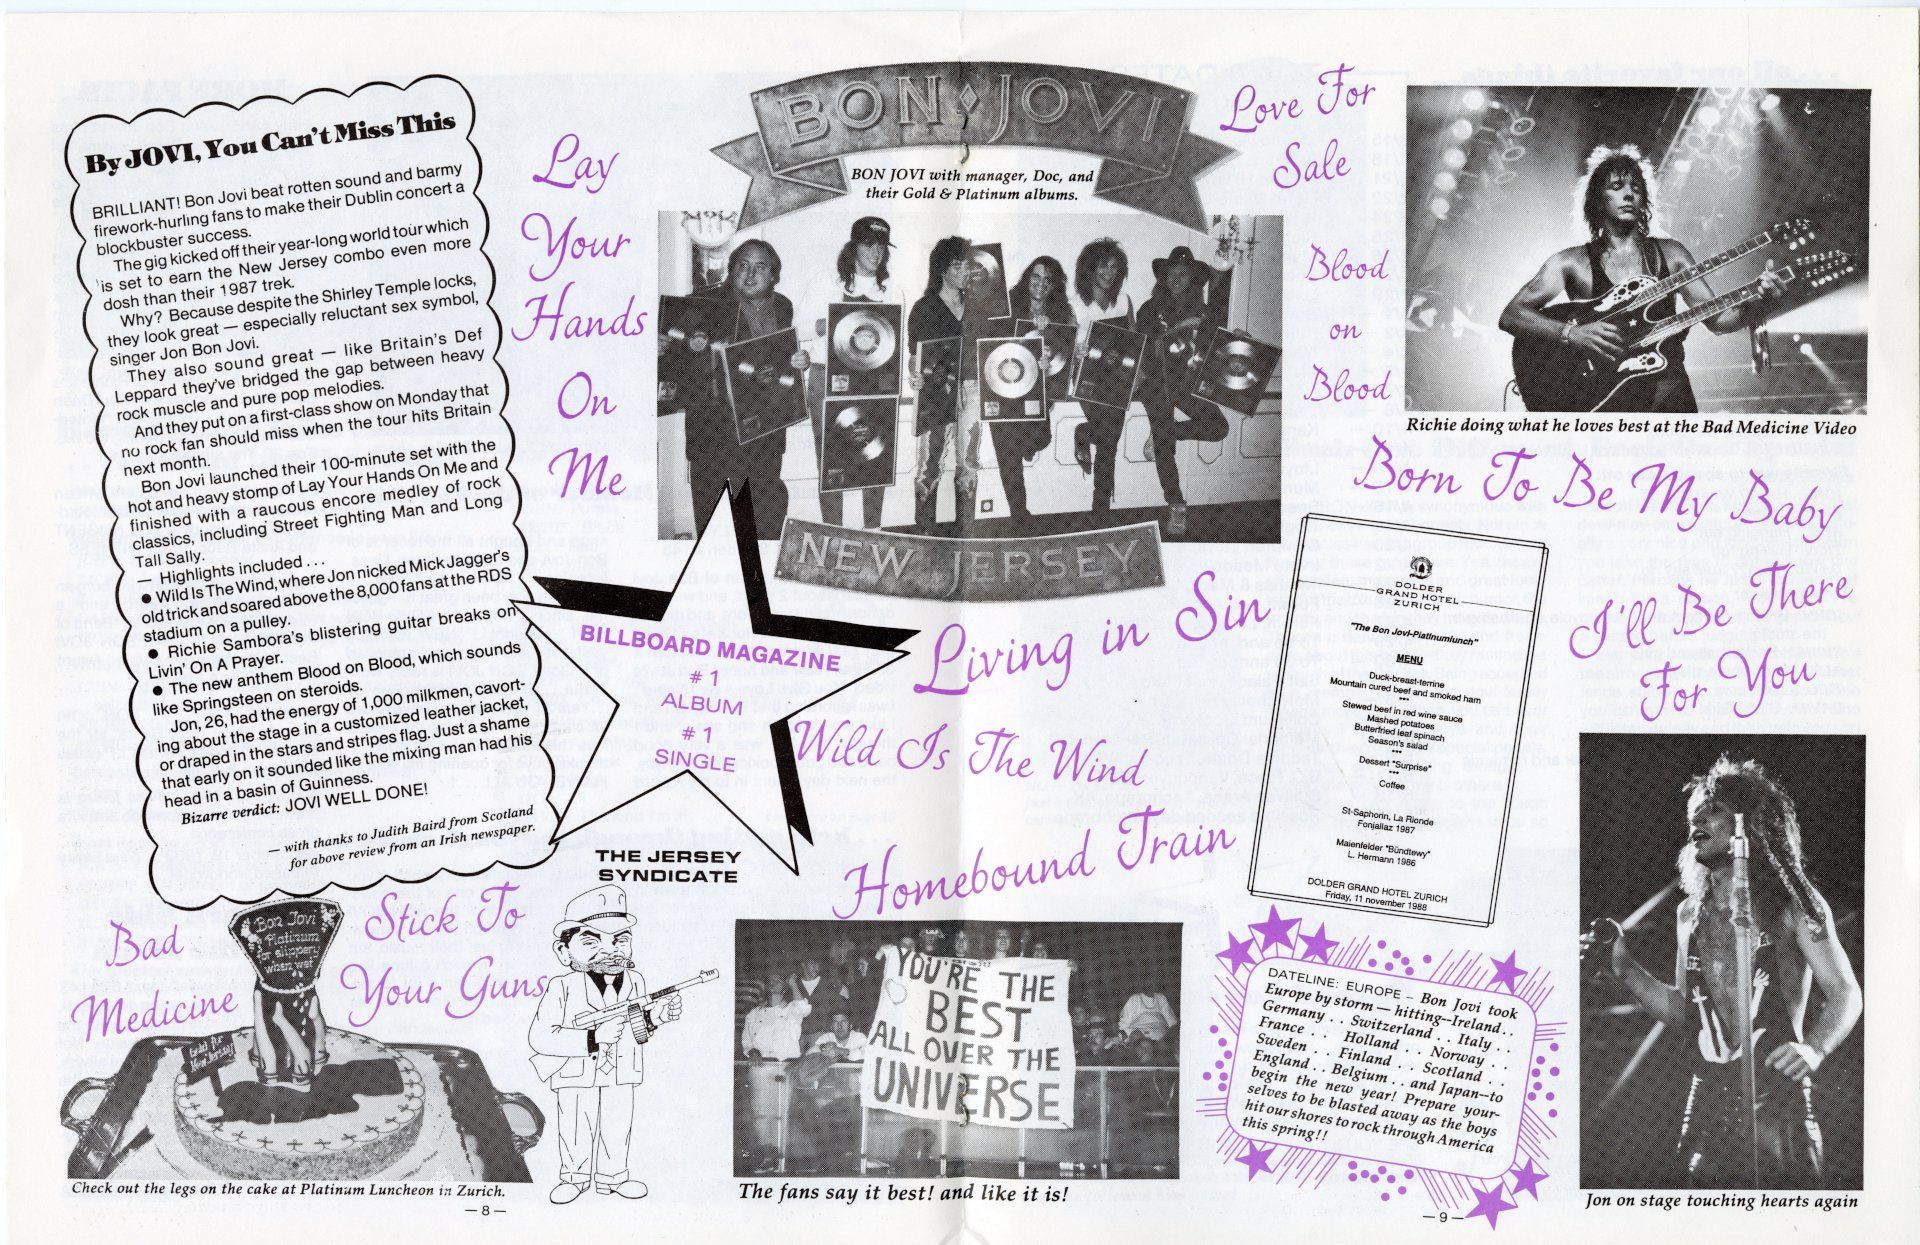 By JOVI, You Can't Miss This
BRILLIANT! Bon Jovi beat rotten sound and barmy
firework-hurling fans to make their Dublin concert a
blockbuster success.
The gig kicked off their year-long world tour which
is set to earn the New Jersey combo even more
dosh than their 1987 trek.
Why? Because despite the Shirley Temple locks,
they look great — especially reluctant sex symbol,
singer Jon Bon Jovi.
They also sound great — like Britain's Def
Leppard they've bridged the gap between heavy
rock muscle and pure pop melodies.
And they put on a first-class show on Monday that
no rock fan should miss when the tour hits Britain
next month.
Bon Jovi launched their 100-minute set with the
hot and heavy stomp of Lay Your Hands On Me and
finished with a raucous encore medley of rock
classics, including Street Fighting Man and Long
Tall Sally.
— Highlights included . . .
● Wild Is The Wind, where Jon nicked Mick Jagger's
old trick and soared above the 8,000 fans at the RDS
stadium on a pulley.
● Richie Sambora's blistering guitar breaks on
Livin' On A Prayer.
● The new anthem Blood on Blood, which sounds
like Springsteen on steroids.
Jon, 26, had the energy of 1,000 milkmen, cavort-
ing about the stage in a customized leather jacket,
or draped in the stars and stripes flag. Just a shame
that early on it sounded like the mixing man had his
head in a basin of Guinness.
Bizarre verdict: JOVI WELL DONE!
— with thanks to Judith Baird from Scotland
for above review from an Irish newspaper.
Lay
Your
Hands
On
Me
BON JOVI
BON JOVI with manager, Doc, and
their Gold & Platinum albums.
NEW JERSEY
Love For
Sale
Blood
on
Blood
Richie doing what he loves best at the Bad Medicine Video
Born To Be My Baby
BILLBOARD MAGAZINE
# 1
ALBUM
# 1
SINGLE
Living in Sin
Wild Is The Wind
Homebound Train
DOLDER
GRAND HOTEL
ZURICH
"The Bon Jovi-Platinumlunch"
MENU
Duck-breast-terrine
Mountain cured beef and smoked ham
***
Stewed beef in red wine sauce
Mashed potatoes
Butterfried leaf spinach
Season's salad
***
Dessert "Surprise"
***
Coffee
St-Saphorin, La Rionde
Fonjallaz 1987
Maienfelder "Bündtewy"
L. Hermann 1986
DOLDER GRAND HOTEL ZURICH
Friday, 11 november 1988
I'll Be There
For You
THE JERSEY
SYNDICATE
Bad
Medicine
Stick To
Your Guns
Bon Jovi
Platinum
for slippery
when wet
Gold for
New Jersey!
Check out the legs on the cake at Platinum Luncheon in Zurich.
— 8 —
YOU'RE THE
BEST
ALL OVER THE
UNIVERSE
The fans say it best! and like it is!
DATELINE: EUROPE – Bon Jovi took
Europe by storm — hitting--Ireland . .
Germany . . Switzerland . . Italy . .
France . . Holland . . Norway . .
Sweden . . Finland . . Scotland . .
England . . Belgium . . and Japan--to
begin the new year! Prepare your-
selves to be blasted away as the boys
hit our shores to rock through America
this spring!!
— 9 —
Jon on stage touching hearts again